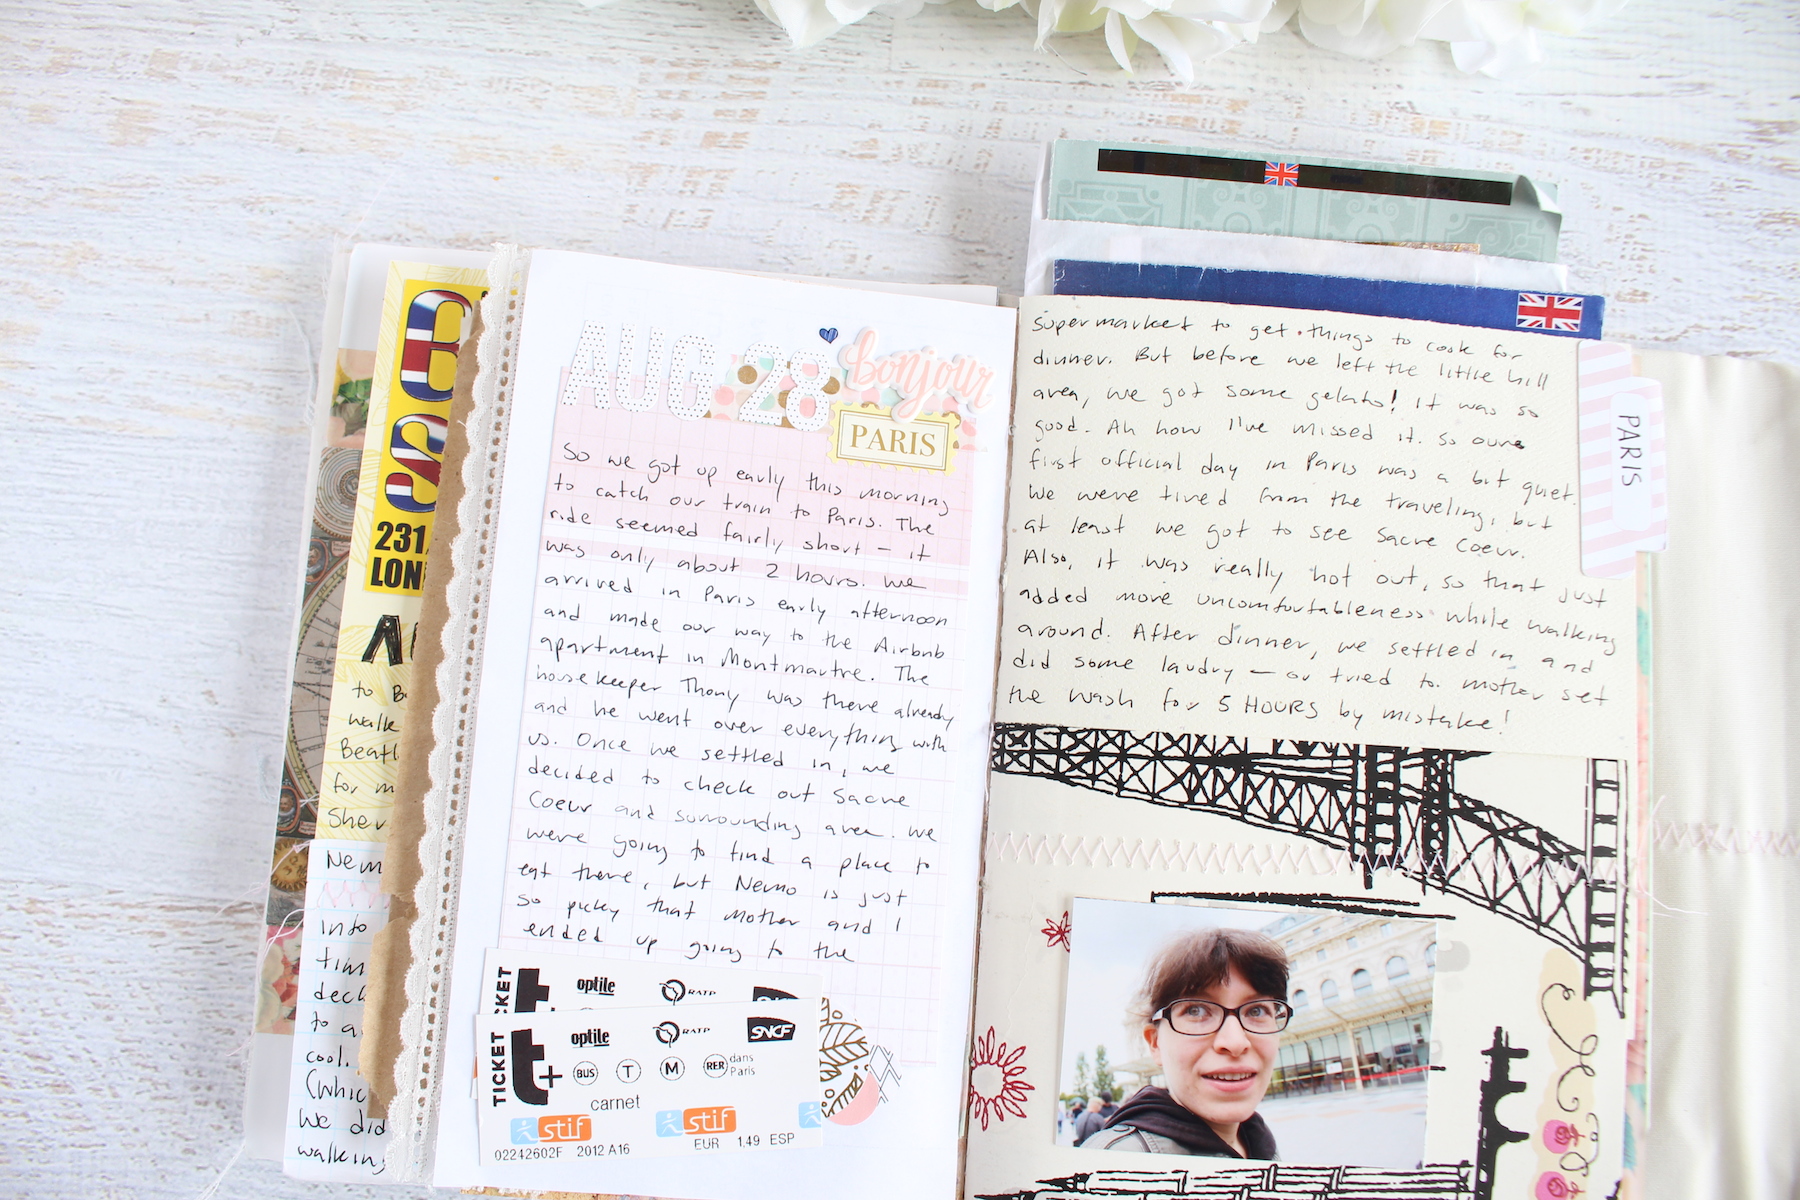 231
LON
to B
walk
Beatl
for m
Sher
Nem
Into
tim
deck
to a
cool.
(whic
We did
walking
AUG 28
bonjour
PARIS
So we got up early this morning
to catch our train to Paris. The
ride seemed fairly short – it
was only about 2 hours. We
arrived in Paris early afternoon
and made our way to the Airbnb
apartment in Montmartre. The
housekeeper Thony was there already
and he went over everything with
us. Once we settled in, we
decided to check out Sacre
Coeur and surrounding area. We
were going to find a place to
eat there, but Nemo is just
so picky that Mother and I
ended up going to the
TICKET
t
optile
RATP
TICKET
t+
optile
RATP
SNCF
BUS T M RER dans
Paris
carnet
stif stif
02242602F 2012 A16 EUR 1,49 ESP
supermarket to get things to cook for
dinner. But before we left the little hill
area, we got some gelato! It was so
good. Ah how I've missed it. So ours
first official day in Paris was a bit quiet.
We were tired from the traveling, but
at least we got to see Sacre Coeur.
Also, it was really hot out, so that just
added more uncomfortableness while walking
around. After dinner, we settled in and
did some laudry – or tried to. Mother set
the wash for 5 HOURS by mistake!
PARIS